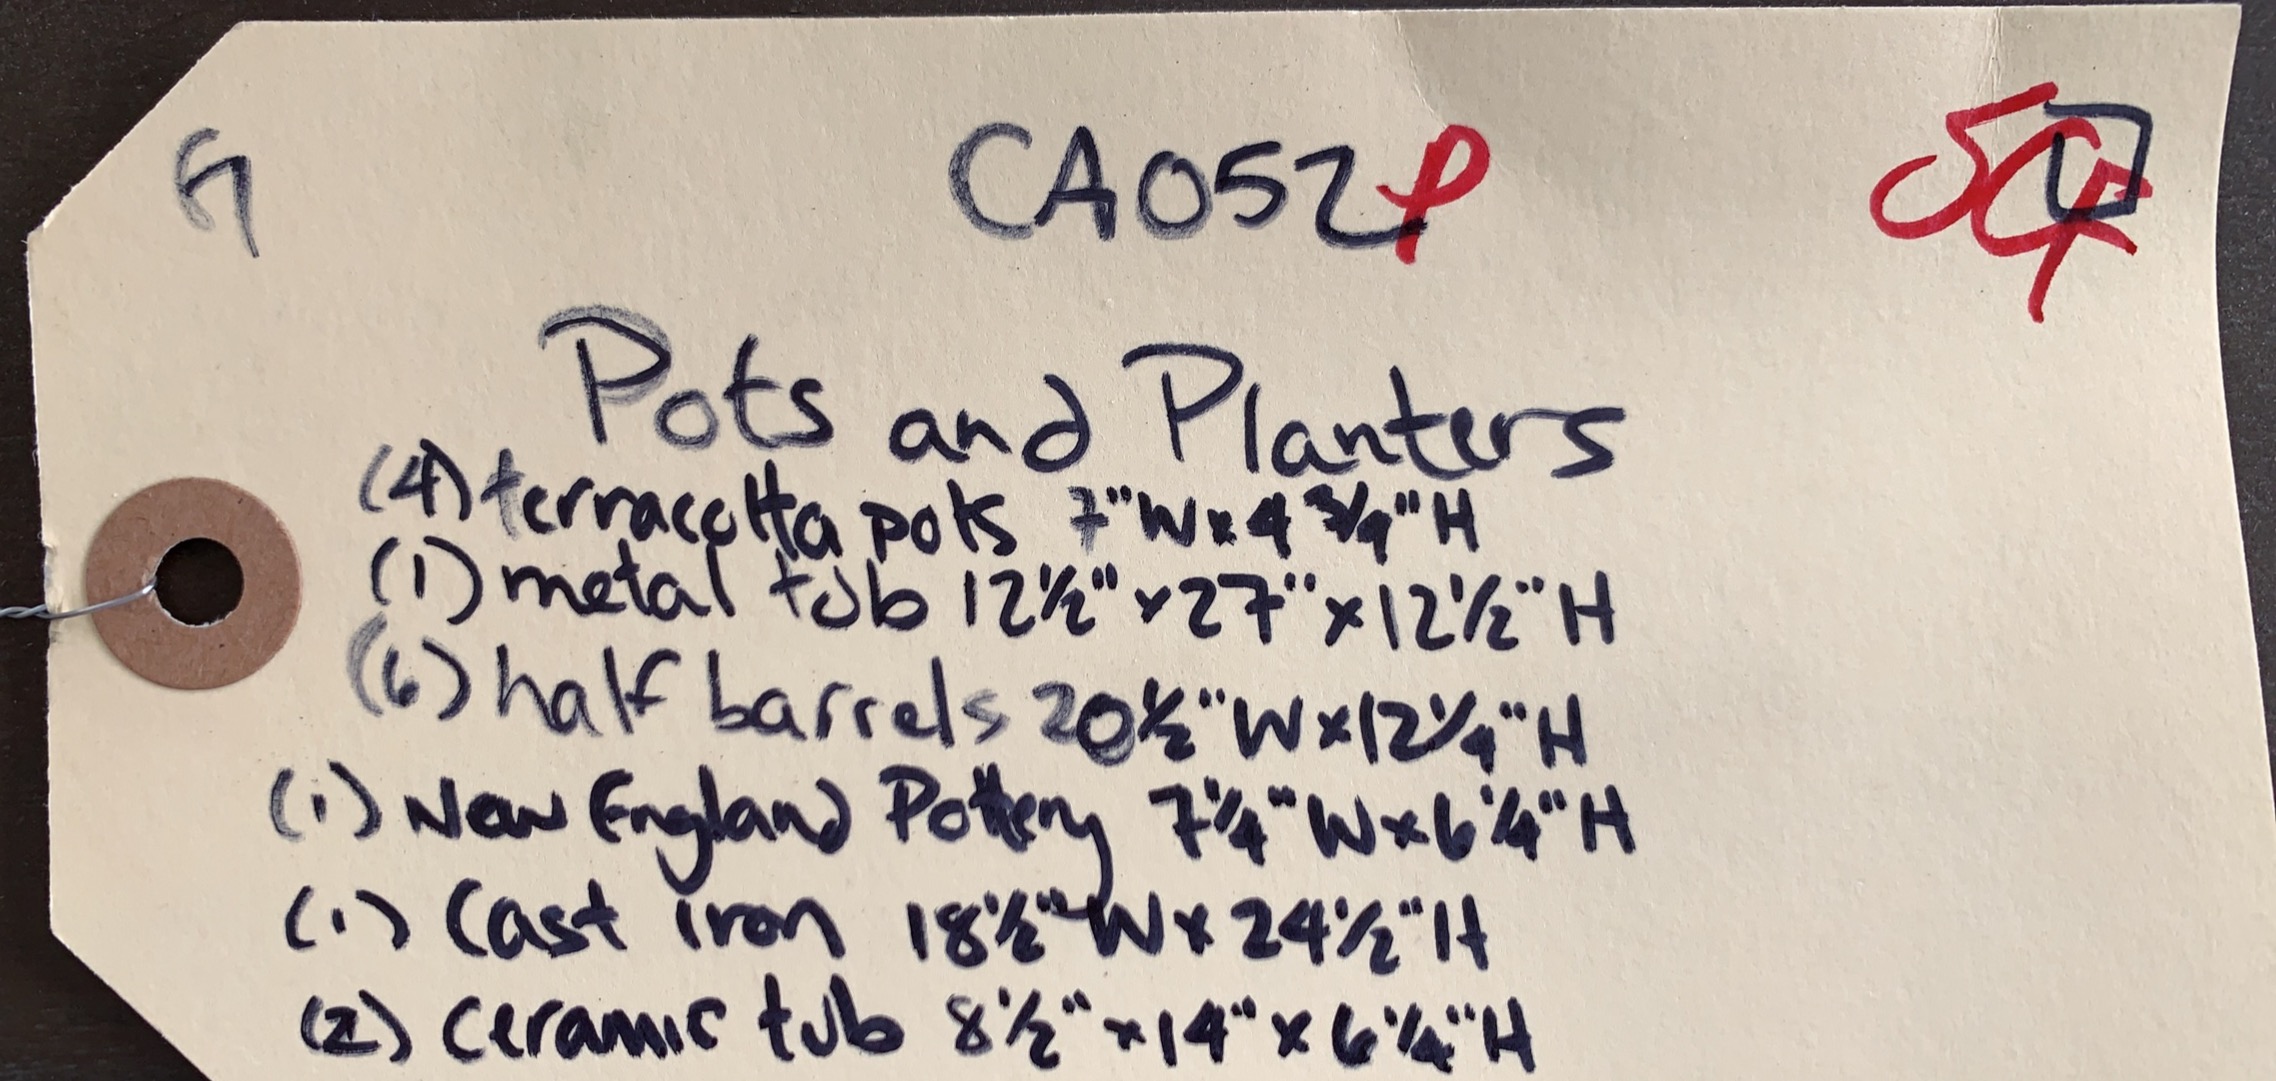 CA052P
Pots and Planters
(4) terracotta pots 7"W x 4 3/4"H
(1) metal tub 12 1/2" x 27" x 12 1/2"H
(6) half barrels 20 1/2"W x 12 1/4"H
(1) New England Pottery 7 1/4"W x 6 1/4"H
(1) Cast iron 18 1/2"W x 24 1/2"H
(2) Ceramic tub 8 1/2" x 14" x 6 1/4"H